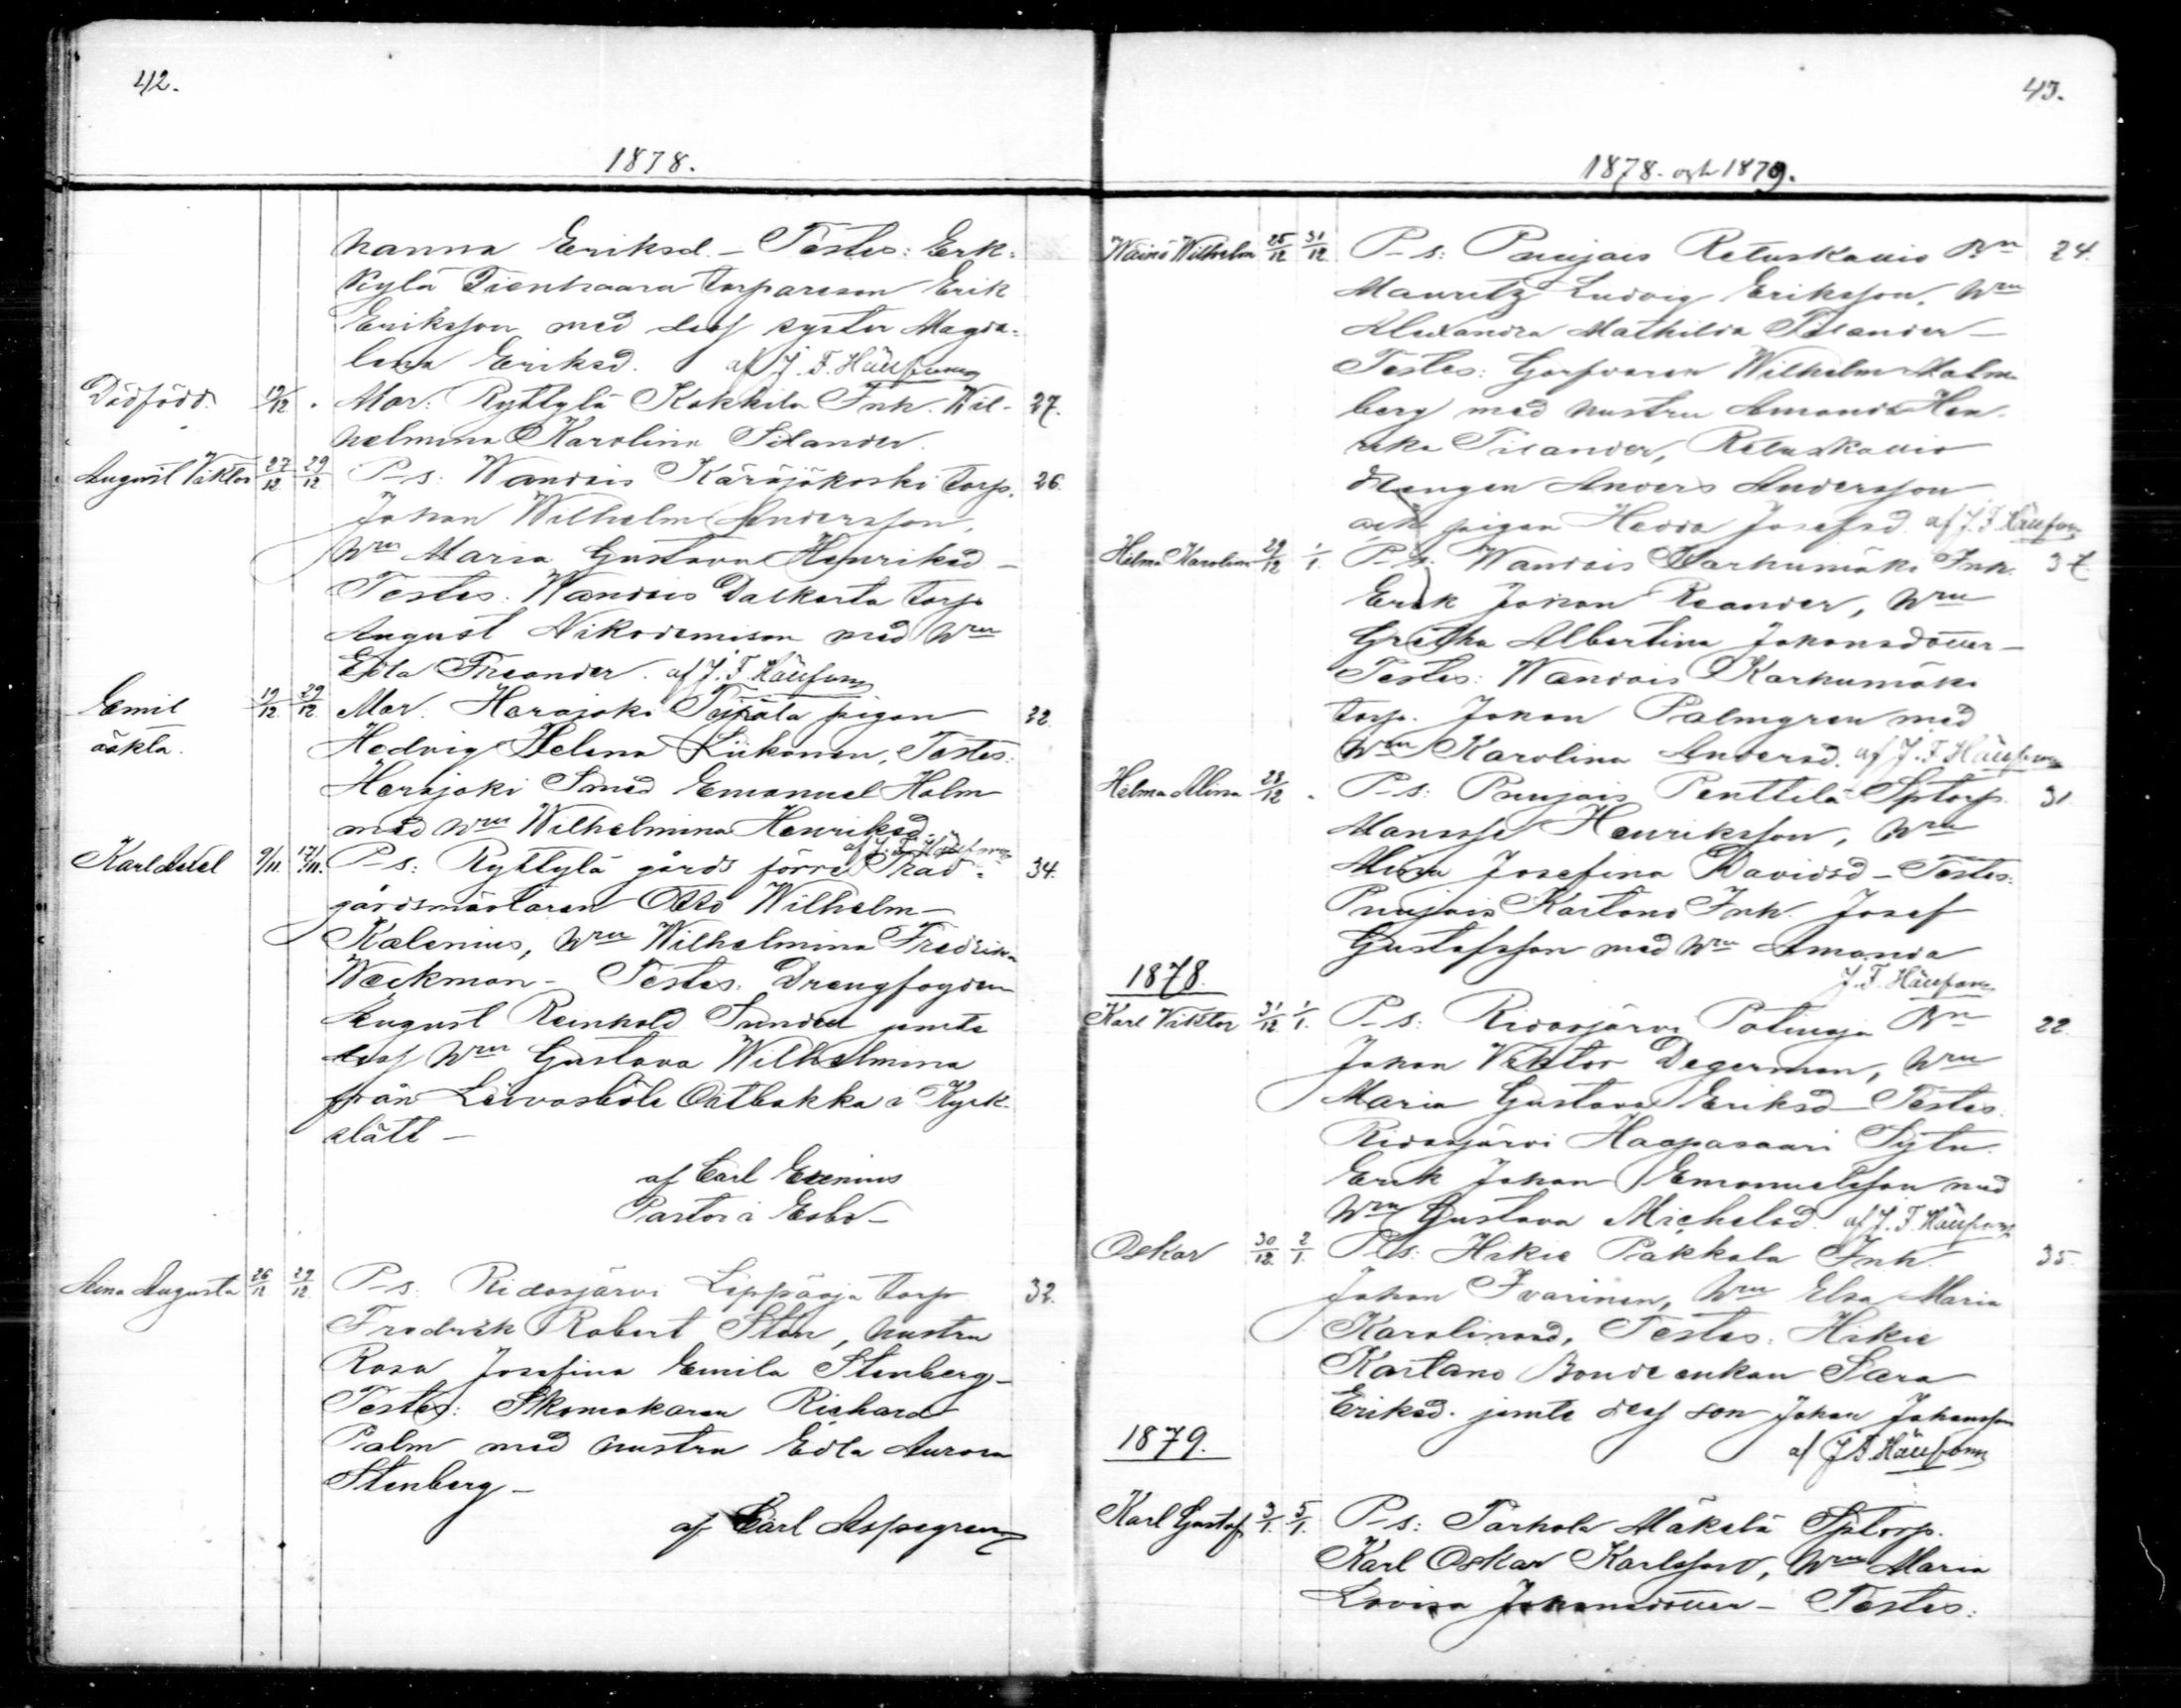 42.
1878.
hanna Eriksd. - Testes: Erk-
kylä Tienhaara torpareson Erik
Eriksson med dess syster Magda-
lena Eriksd. af J. F. Häusfamn
Dödfödd. 19/12 . Mor: Ryttylä Kokkila Inh. Wil- 27.
helmina Karolina Silander.
August Viktor 27/12 29/12 P-s: Wantais Käräjäkoski torp. 26.
Johan Wilhelm Andersson,
hru Maria Gustava Henriksd -
Testes. Wantais Dalkarta torp
August Nikodemison med hru
Edla Freander. af J. F. Häusfamn
Emil 19/12 29/12 Mor. Herajoki pigan 32.
oäkta. Hedvig Helena Liikanen, Testes:
Herajoki Smed Emanuel Holm
med hru Wilhelmina Henriksd.
af J. F. Häusfamn
Karl Axel 9/11. 17/11. P-s: Ryttylä gårds förre Träd- 34.
gårdsmästaren Otto Wilhelm
Kalenius, hru Wilhelmina Fredrika
Weckman - Testes. Drengfogden
August Reinhold Sundell jemte
dess hru Gustava Wilhelmina
från Oitbakka i Kyrk-
slätt -
af Carl
Pastor i Esbo -
Alma Augusta 26/12 29/12 P-s. Ridasjärvi Leppäoja torp 32.
Fredrik Robert Sten, hustru
Rosa Josefina Emila Stenberg -
Testes: Skomakaren Richard
Palm med hustru Edla Aurora
Stenberg -
af Carl Aspegren
43.
1878 och 1879.
Wäinö Wilhelm 25/12 31/12 P-s: Puujais Retuskallio Bn 24.
Mauritz Ludvig Eriksson, hru
Alexandra Mathilda Tilander -
Testes: Garfvaren Wilhelm Malm-
berg med hustru Amanda Hen-
rika Tilander, Retuskallio
drengen Anders Andersson
och pigan Hedda Josefsd. af J. F. Häusfamn
Hilma Karolina 29/12 1/1. P-s: Wantais Karhumäki Inh. 37.
Erik Johan Reander, hru
Gretha Albertina Johansdotter -
Testes: Wantais Karhumäki
torp. Johan Palmgren med
hru Karolina Andersd. af J. F. Häusfamn
Hilma Alina 28/12 . P-s: Puujais Penttilä Sptorp. 31
Manasse Henriksson, hru
Josefina Davidsd - Testes:
Puujais Kartano Inh. Josef
Gustafsson med hru Amanda
J. F. Häusfamn
1878.
Karl Viktor 31/12 1/1. P-s: Ridasjärvi Bn 22.
Johan Viktor Degerman, hru
Maria Gustava Eriksd - Testes.
Ridasjärvi Haapasaari Sytn.
Erik Johan Emanuelsson med
hru Gustava Michelsd. af J. F. Häusfamn
Oskar 30/12. 2/1. P-s: Hikie Pakkala Inh. 35.
Johan Ivarinen, hru Elsa Maria
Karolinasd, Testes: Hikie
Kartano Bonde enkan Sara
Eriksd. jemte dess son Johan Johansson
af J. F. Häusfamn
1879.
Karl Gustaf 3/1. 5/1. P-s: Parhola Mäkelä Sptorp.
Karl Oskar Karlsson, hru Maria
Lovisa Johansdotter - Testes: